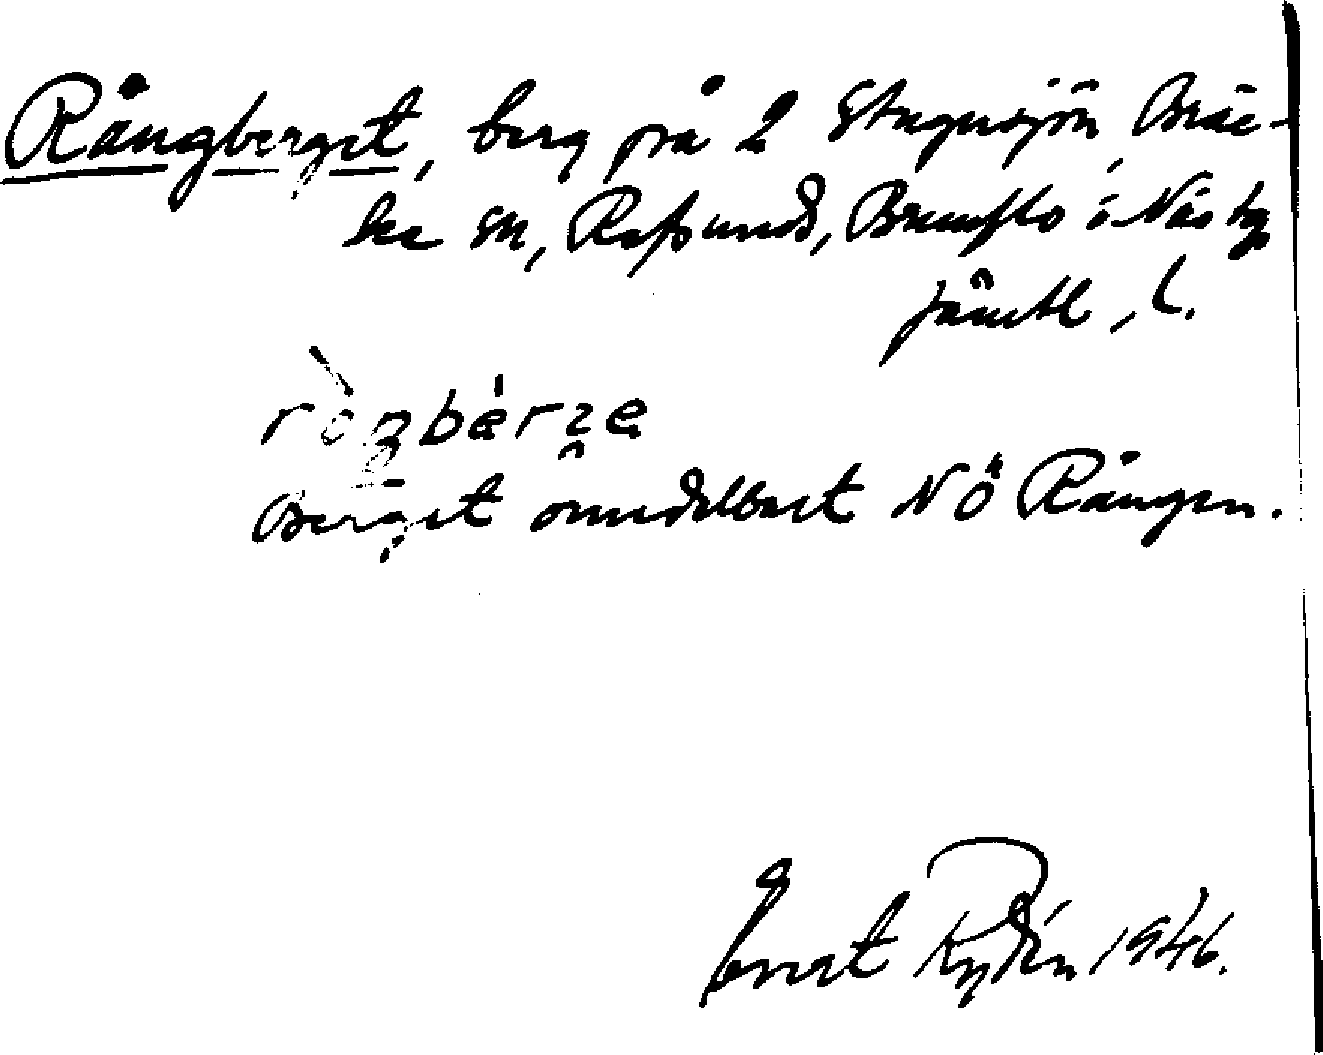 Rångberget, berg på 2 Stugusjön, Bräc-
ke sn, Refsunds, Brunflo o Näs tg
Jämtl, l.
Berget omedelbart NÖ Rången.
Evert Rydén 1946.